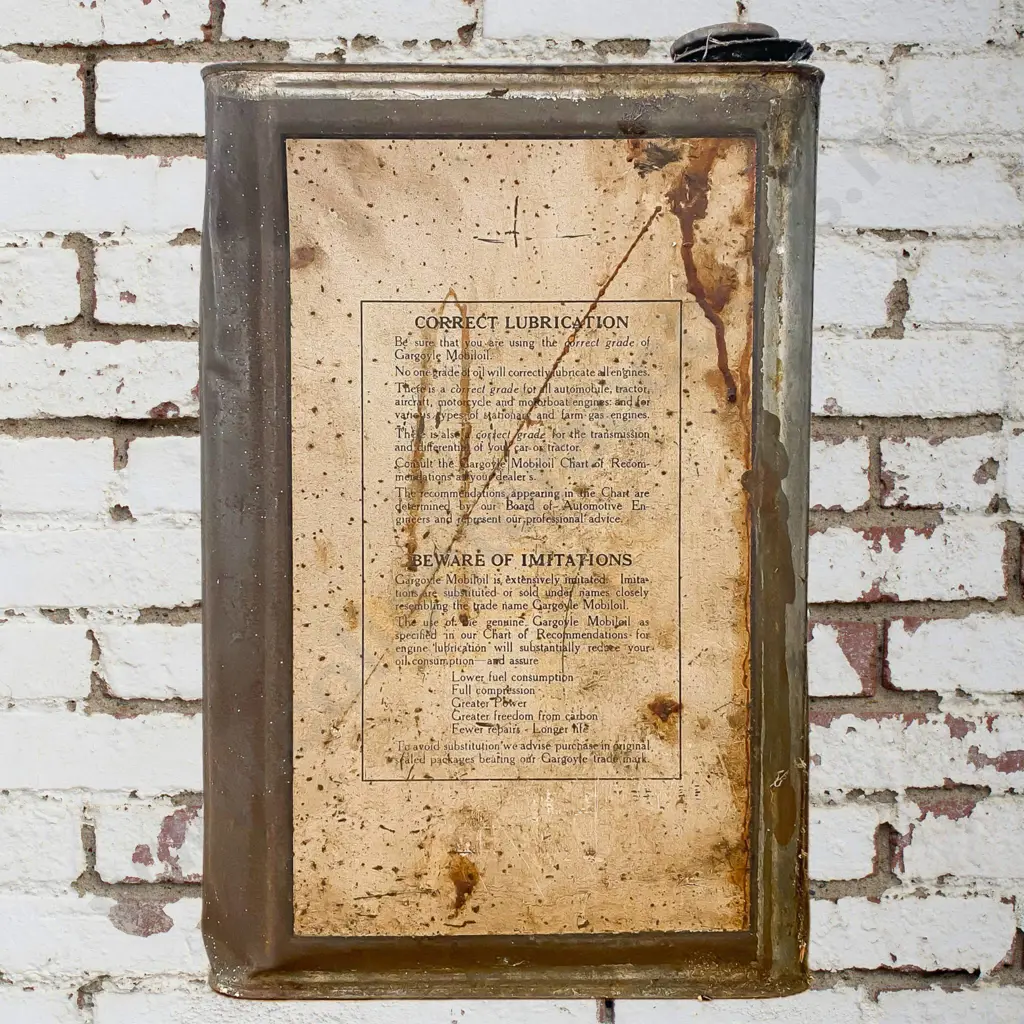 CORRECT LUBRICATION
Be sure that you are using the correct grade of
Gargoyle Mobiloil.
No one grade of oil will correctly lubricate all engines.
There is a correct grade for all automobile, tractor,
aircraft, motorcycle and motorboat engines: and for
various types of stationary and farm gas engines.
There is also a correct grade for the transmission
and differential of your car or tractor.
Consult the Gargoyle Mobiloil Chart of Recom-
mendations at your dealer's.
The recommendations appearing in the Chart are
determined by our Board of Automotive En-
gineers and represent our professional advice.
BEWARE OF IMITATIONS
Gargoyle Mobiloil is extensively imitated. Imita-
tions are substituted or sold under names closely
resembling the trade name Gargoyle Mobiloil.
The use of the genuine Gargoyle Mobiloil as
specified in our Chart of Recommendations for
engine lubrication will substantially reduce your
oil consumption—and assure
Lower fuel consumption
Full compression
Greater Power
Greater freedom from carbon
Fewer repairs - Longer life
To avoid substitution we advise purchase in original
sealed packages bearing our Gargoyle trade mark.